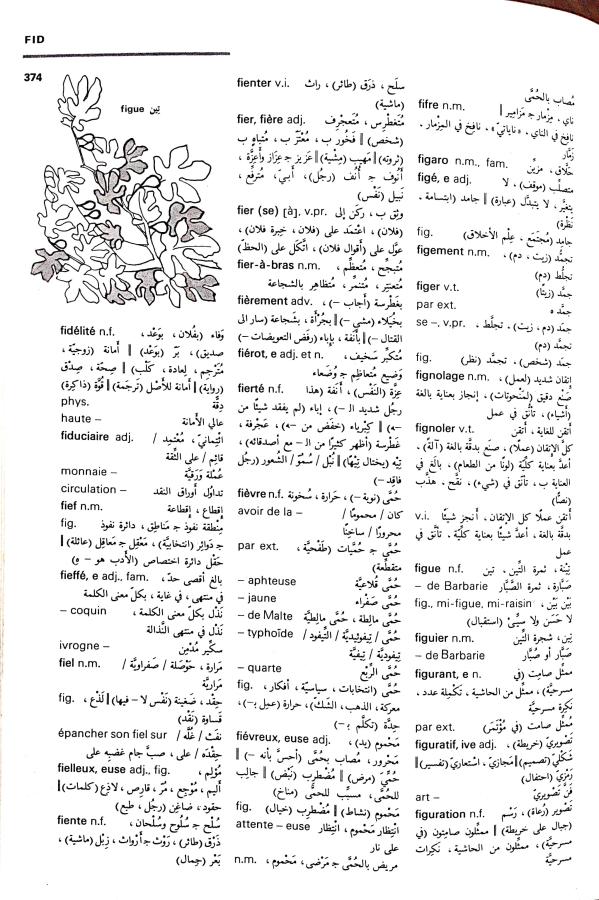 FID
374
figue تِين
fidélité n.f. وَفاء (بفُلان، بوَعْد،
صديق)، بَرّ (بوَعْد) ‖ أمانة (زوجيّة،
مُتَرْجِم، لعادة، كَلْب) ‖ صِحّة، صِدْق
(رواية) ‖ أمانة للأصْل (تَرجَمة) ‖ قُوّة (ذاكِرة)
phys. دِقّة
haute – عالي الأمانة
fiduciaire adj. ائْتِمانيّ، مُعْتَمِد /
قائِم / على الثِّقة
monnaie – عُملة وَرَقيّة
circulation – تداوُل أوراق النقد
fief n.m. إقطاع، إقطاعة
fig. مِنْطَقة نفوذ ج مَناطِق، دائرة نفوذ
ج دَوائِر (انتخابية)، مَعْقِل ج مَعاقِل (عائلة) ‖
حَقْل دائرة اختصاص (الأدب هو – و)
fieffé, e adj., fam. بالِغ أقصى حدّ،
في مُنتهى، في غاية، بكلّ معنى الكلمة
– coquin نَذْل بكلّ معنى الكلمة،
نَذْل في منتهى النَّذالة
ivrogne – سِكِّير مُدْمِن
fiel n.m. مَرارة، حَوْصَلة / صَفراويّة /
مَراريّة
fig. حِقْد، ضَغينة (نَفْس لا – فيها) ‖ لَذْع،
قَساوة (نَقْد)
épancher son fiel sur نَفَث / غِلَّه /
حِقْدَه / على، صبَّ جام غضبِه على
fielleux, euse adj., fig. مُؤلِم،
أليم، مُوْجِع، مُرّ، قارِص، لاذِع (كلمات) ‖
حَقود، ضاغِن (رجُل، طبع)
fiente n.f. سُلْح ج سُلُوح وسُلْحان،
ذَرْق (طائر)، رَوْث ج أرْواث، زِبْل (ماشية)،
بَعْر (جِمال)
fienter v.i. سلَح، ذرَق (طائر)، راث
(ماشية)
fier, fière adj. مُتَغَطْرِس، مُتَعجْرِف
(شخص) ‖ فَخُور ب، مُعْتَزّ ب، مُتباهٍ ب
(ثروته) ‖ مَهيب (مِشْية) ‖ عَزيز ج عِزاز وأعِزّة،
أَنُوف ج أُنُف (رجُل)، أَبيّ، مُترفِّع،
نَبيل (نَفْس)
fier (se) [à]. v.pr. وثِق ب، ركَن إلى
(فلان)، اعتَمَد على (فلان، خبرة فلان)،
عوَّل على (أقوال فلان)، اتَّكل على (الحظّ)
fier-à-bras n.m. مُتبجِّح، مُتعظِّم،
مُتعنتِر، مُتنمِّر، مُتظاهِر بالشجاعة
fièrement adv. بغَطْرسة (أجاب –)،
بخُيَلاء (مشى –) ‖ بجُرْأة، بشَجاعة (سار الى
القتال –) ‖ بأنَفة، بإباء (رفَض التعويضات –)
fiérot, e adj. et n. مُتكبِّر سَخيف،
وَضيع مُتعاظِم ج وُضَعاء
fierté n.f. عِزّة (النَّفْس)، أَنَفة (هذا
رجُل شديد ال –)، إباء (لم يفقد شيئًا من
–ه) ‖ كِبْرياء (خفَّض من –ه)، عَجْرفة،
غَطْرسة (أظهر كثيرًا من ال – مع أصدقائه)،
تِيْه (يختال تِيْهًا) ‖ نُبْل / سُمُوّ / الشُّعور (رجُل
فاقِد –)
fièvre n.f. حُمَّى (نوبة –)، حَرارة، سُخونة
avoir de la – كان / محمومًا /
محرورًا / ساخِنًا
par ext. حُمَّى ج حُمَّيات (طَفْحيّة،
متقطِّعة)
– aphteuse حُمَّى قُلاعيّة
– jaune حُمَّى صَفْراء
– de Malte حُمَّى مالطة، حُمَّى مالِطيّة
– typhoïde حُمَّى / تيفوئيديّة / التيفود /
تيفوديّة / تيفيّة
– quarte حُمَّى الرِّبْع
fig. حُمَّى (انتخابات، سياسيّة، أفكار،
معركة، الذهب، الشَّكّ)، حرارة (عمِل بـ–)،
حِدّة (تكلَّم بـ–)
fiévreux, euse adj. مَحْموم (يد)،
مَحْرور، مُصاب بحُمَّى (أحسَّ بأنه –) ‖
حُمِّيّ (مرض) ‖ مُضْطرِب (نَبْض) ‖ جالِب
للحُمَّى، مسبِّب للحُمَّى (مناخ)
fig. مَحْموم (نشاط) ‖ مُضْطرِب (خيال)
attente – euse انتِظار مَحْموم، انتِظار
على نار
n.m. مريض بالحُمَّى ج مَرْضى، مَحْموم،
مُصاب بالحُمَّى
fifre n.m. ناي، مِزمار ج مَزامير ‖
نافِخ في الناي، «ناياتيّ»، نافِخ في المِزمار،
زَمّار
figaro n.m., fam. حَلّاق، مزيّن
figé, e adj. متصلِّب (موقف)، لا
يتغيَّر، لا يتبدَّل (عبارة) ‖ جامِد (ابتسامة،
نَظْرة)
fig. جامِد (مجْتَمَع، عِلْم الأخلاق)
figement n.m. تجمُّد (زيت، دم)،
تجلُّط (دم)
figer v.t. جمَّد (زيتًا)
par ext. جمَّد ه
se –, v.pr. جمَد (دم، زيت)، تجلَّط،
تجمَّد (دم)
fig. جمَد (شخص)، تجمَّد (نظر)
fignolage n.m. إتقان شديد (لعمل)،
صُنْع دقيق (لمَنْحوتات)، إنجاز بعناية بالغة
(أشياء)، تأنُّق في عمل
fignoler v.t. أتقن للغاية، أتقن
كلَّ الإتقان (عملًا)، صنَع بدقّة بالغة (آلة)،
أعدَّ بعناية كلّيّة (لونًا من الطعام)، بالَغ في
العناية ب، تأنَّق في (شيء)، نقَّح، هذَّب
(نصًّا)
v.i. أتقن عملًا كل الإتقان، أنجز شيئًا
بدقّة بالغة، أعدَّ شيئًا بعناية كلّيّة، تأنَّق في
عمل
figue n.f. تِيْنة، ثمرة التِّين، تين
– de Barbarie صَبّارة، ثمرة الصَّبّار
fig., mi-figue, mi-raisin بَيْنَ بَيْنَ،
لا حَسَن ولا سيِّئ (استقبال)
figuier n.m. تين، شجرة التِّين
– de Barbarie صَبّار أو صُبَّار
figurant, e n. ممثِّل صامِت (في
مسرحيّة)، ممثِّل من الحاشية، تكمِلة عدد،
نَكِرة مسرحيّة
par ext. مُمثِّل صامِت (في مُؤتَمَر)
figuratif, ive adj. تَصْويريّ (خريطة)،
شَكْليّ (تصميم) ‖ مَجازيّ، استِعاريّ (تفسير) ‖
رَمْزيّ (احتفال)
art – فَنّ تَصْويريّ
figuration n.f. تَصْوير (رُعاة)، رَسْم
(جبال على خريطة) ‖ ممثِّلون صامتون (في
مسرحيّة)، ممثِّلون من الحاشية، نَكِرات
مسرحيّة